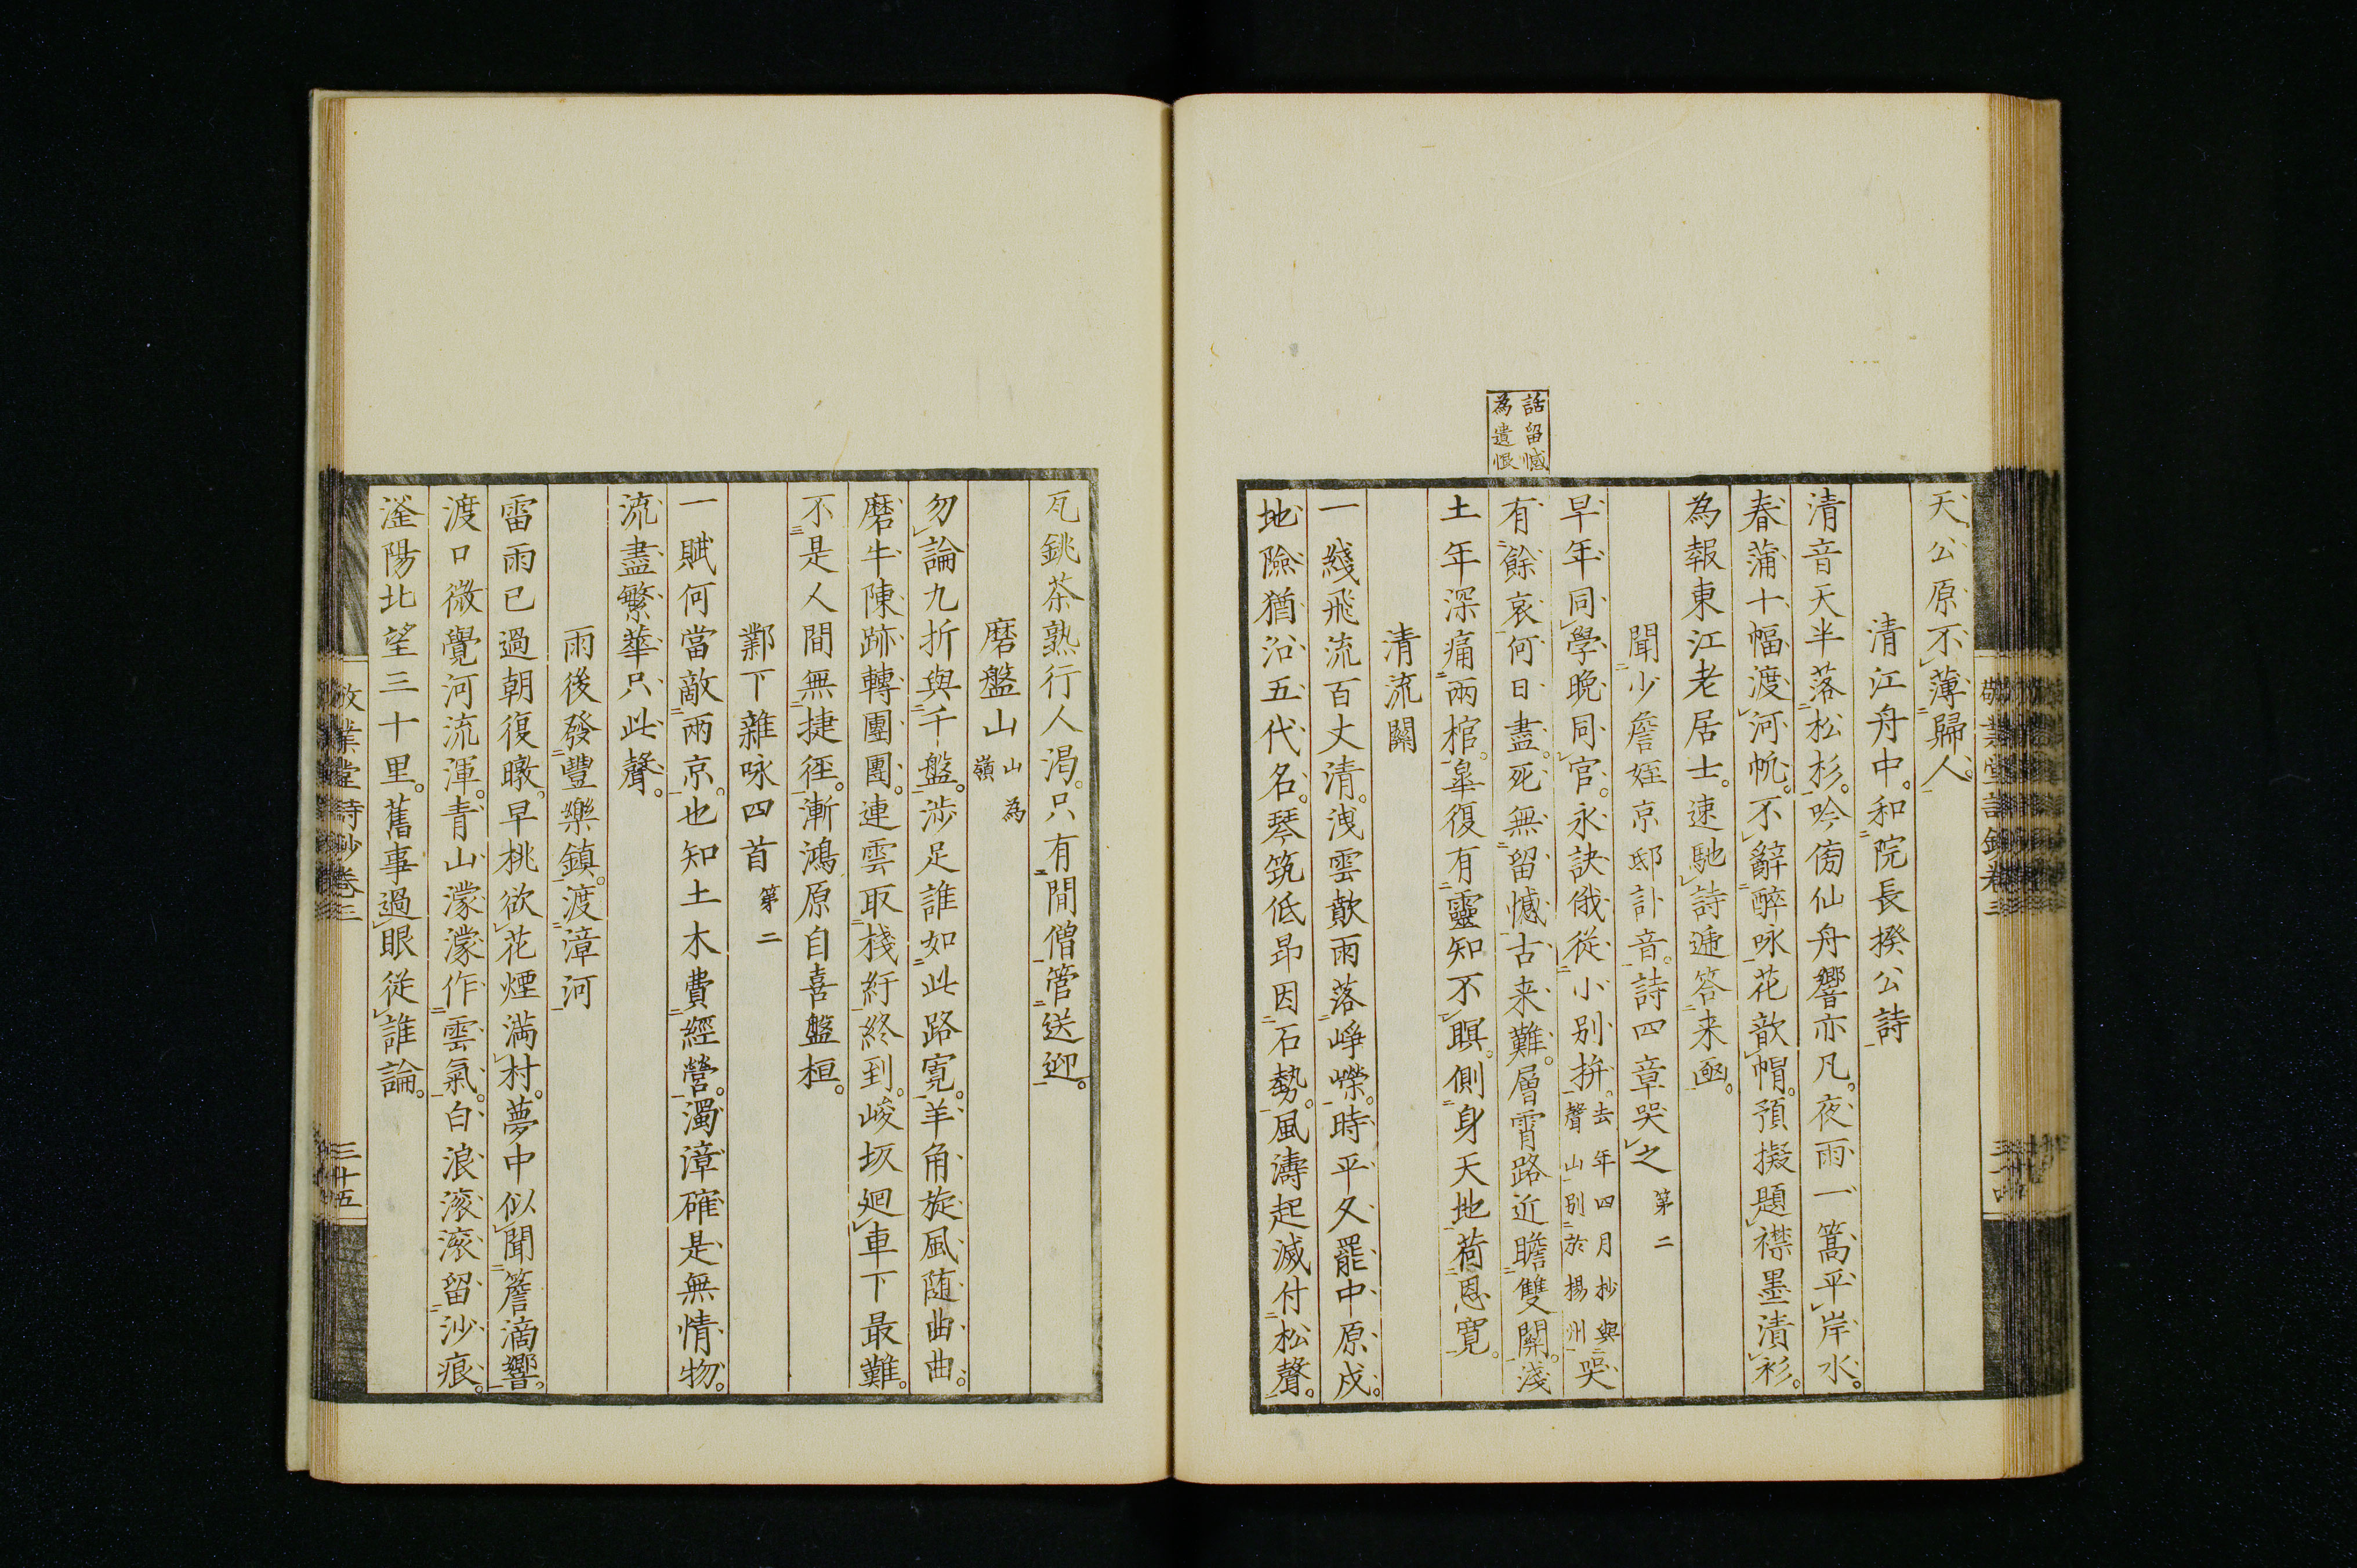 話留憾
為遺恨
天公原不薄歸人。
清江舟中。和院長揆公詩
清音天半落松杉。吟傍仙舟響亦凡。夜雨一篙平岸水。
春蒲十幅渡河帆。不辭醉咏花欹帽。預擬題襟墨漬衫。
為報東江老居士。速馳詩遞答来凾。
聞少詹姪京邸訃音。詩四章哭之 第二
早年同學晚同官。永訣俄従小別拚。去年四月抄與聲山別於揚州哭
有餘哀何日盡。死無留憾古来難。層霄路近瞻雙闕。淺
土年深痛兩棺。皐復有靈知不瞑。側身天地荷恩寬。
清流關
一綫飛流百丈清。洩雲歕雨落崢嶸。時平久罷中原戍。
地險猶沿五代名。琴筑低昂因石勢。風濤起滅付松聲。
敬業堂詩鈔卷三
三十四
瓦銚茶熟行人渴。只有閒僧管送迎。
磨盤山 山為嶺
勿論九折與千盤。涉足誰如此路寛。羊角旋風随曲曲。
磨牛陳跡轉團團。連雲取棧紆終到。峻坂廻車下最難。
不是人間無捷徑。漸鴻原自喜盤桓。
鄴下雜咏四首 第二
一賦何當敵兩京。也知土木費經營。濁漳確是無情物。
流盡繁華只此聲。
雨後發豐樂鎮。渡漳河
雷雨已過朝復暾。早桃欲花煙満村。夢中似聞簷滴響。
渡口微覺河流渾。青山濛濛作雲氣。白浪滚滚留沙痕。
滏陽北望三十里。舊事過眼従誰論。
敬業堂詩鈔卷三
三十五